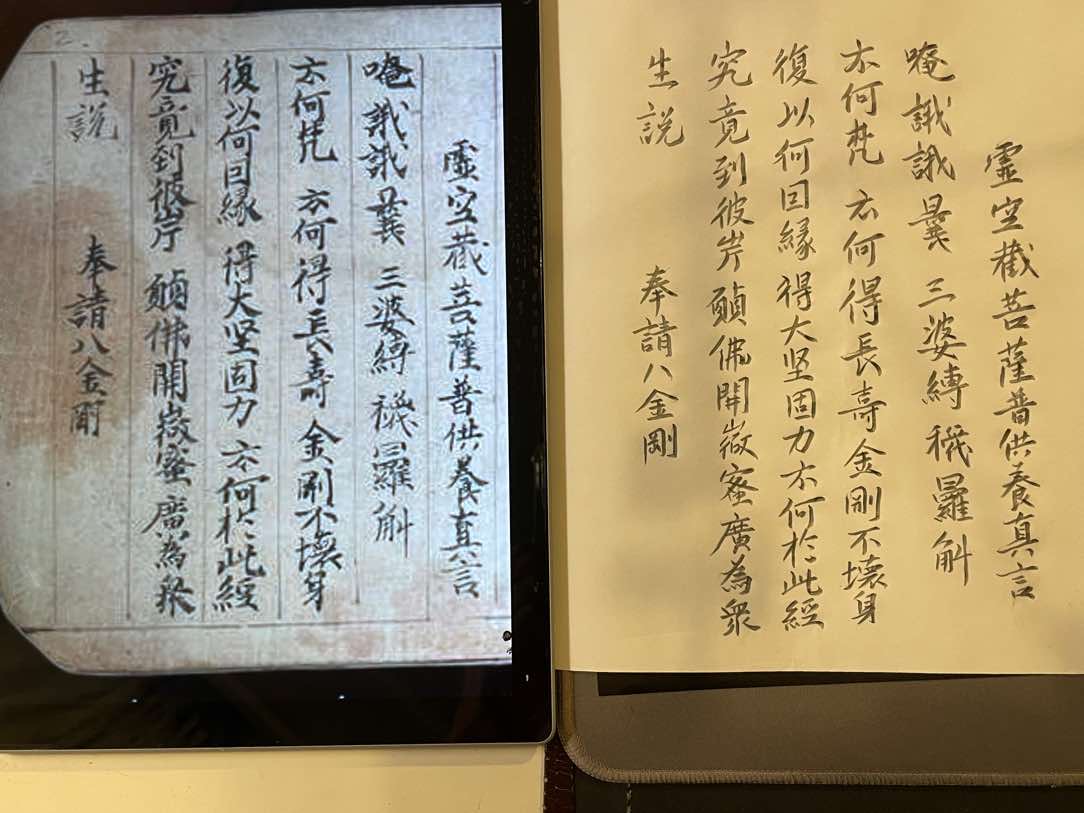 2.
霊空藏菩薩普供養真言
唵誐誐曩 三婆縛 襪羅斛
云何梵 云何得長壽 金剛不壞身
復以何因緣 得大坚固力 云何扵此經
究竟到彼岸 願佛開微蜜 廣為眾
生說 奉請八金剛
霊空藏菩薩普供養真言
唵誐誐曩 三婆縛襪羅斛
云何梵 云何得長壽金剛不壞身
復以何因緣得大坚固力云何扵此經
究竟到彼岸願佛開微蜜廣為眾
生說 奉請八金剛